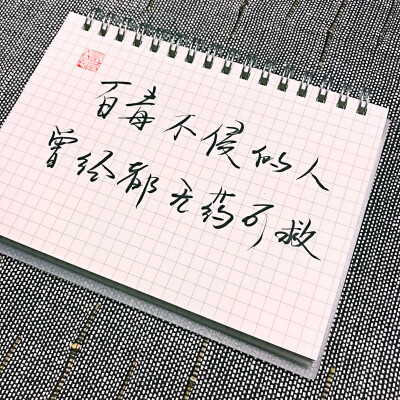 百毒不侵的人
曾经都无药可救